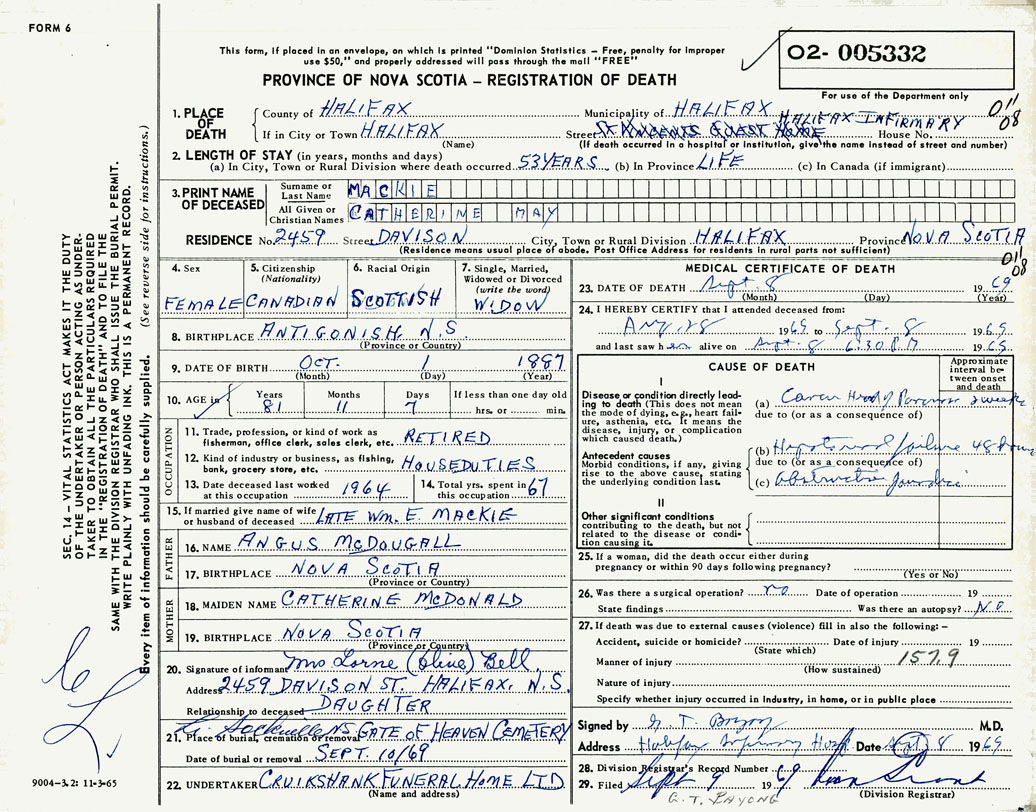 FORM 6
This form, if placed in an envelope, on which is printed "Dominion Statistics – Free, penalty for improper
use $50," and properly addressed will pass through the mail "FREE"
PROVINCE OF NOVA SCOTIA – REGISTRATION OF DEATH
02- 005332
For use of the Department only
011
08
1. PLACE OF DEATH
County of HALIFAX Municipality of HALIFAX
HALIFAX INFIRMARY
If in City or Town HALIFAX Street St Vincents Guest Home House No.
(Name) (If death occurred in a hospital or institution, give the name instead of street and number)
2. LENGTH OF STAY (in years, months and days)
(a) In City, Town or Rural Division where death occurred 53 YEARS (b) In Province LIFE (c) In Canada (if immigrant)
3. PRINT NAME OF DECEASED
Surname or Last Name MACKIE
All Given or Christian Names CATHERINE MAY
RESIDENCE No. 2459 Street DAVISON City, Town or Rural Division HALIFAX Province NOVA SCOTIA
(Residence means usual place of abode. Post Office Address for residents in rural parts not sufficient)
011
08
4. Sex
FEMALE
5. Citizenship (Nationality)
CANADIAN
6. Racial Origin
SCOTTISH
7. Single, Married, Widowed or Divorced (write the word)
WIDOW
8. BIRTHPLACE ANTIGONISH N.S.
(Province or Country)
9. DATE OF BIRTH OCT. 1 1887
(Month) (Day) (Year)
10. AGE in Years 81 Months 11 Days 7 If less than one day old
hrs. or min.
OCCUPATION
11. Trade, profession, or kind of work as fisherman, office clerk, sales clerk, etc. RETIRED
12. Kind of industry or business, as fishing, bank, grocery store, etc. HOUSEDUTIES
13. Date deceased last worked at this occupation 1964
14. Total yrs. spent in this occupation 67
15. If married give name of wife or husband of deceased LATE WM. E. MACKIE
FATHER
16. NAME ANGUS McDOUGALL
17. BIRTHPLACE NOVA SCOTIA
(Province or Country)
MOTHER
18. MAIDEN NAME CATHERINE McDONALD
19. BIRTHPLACE NOVA SCOTIA
(Province or Country)
20. Signature of informant Mrs Lorne (Olive) Bell
Address 2459 DAVISON ST. HALIFAX, N.S.
Relationship to deceased DAUGHTER
Sackville NS
21. Place of burial, cremation or removal GATE OF HEAVEN CEMETERY
Date of burial or removal SEPT. 10/69
22. UNDERTAKER CRUIKSHANK FUNERAL HOME LTD
(Name and address)
MEDICAL CERTIFICATE OF DEATH
23. DATE OF DEATH Sept. 8 1969
(Month) (Day) (Year)
24. I HEREBY CERTIFY that I attended deceased from:
Aug. 28 1969 to Sept. 8 1969
and last saw her alive on Sept 8 6:30 PM 1969
CAUSE OF DEATH
Approximate interval between onset and death
I
Disease or condition directly leading to death (This does not mean the mode of dying, e.g., heart failure, asthenia, etc. It means the disease, injury, or complication which caused death.)
(a) Cancer Head of Pancreas 2 weeks
due to (or as a consequence of)
Antecedent causes
Morbid conditions, if any, giving rise to the above cause, stating the underlying condition last.
(b) Hepatorenal failure 48 hours
due to (or as a consequence of)
(c) Obstructive jaundice
II
Other significant conditions contributing to the death, but not related to the disease or condition causing it.
25. If a woman, did the death occur either during pregnancy or within 90 days following pregnancy?
(Yes or No)
26. Was there a surgical operation? no Date of operation 19
State findings Was there an autopsy? NO
27. If death was due to external causes (violence) fill in also the following: –
Accident, suicide or homicide? Date of injury 19
(State which)
Manner of injury 157.9
(How sustained)
Nature of injury
Specify whether injury occurred in industry, in home, or in public place
Signed by M.D.
Address Halifax Infirmary Hosp. Date Sept 8 1969
28. Division Registrar's Record Number
29. Filed Sept 9 1969
(Division Registrar)
SEC. 14 – VITAL STATISTICS ACT MAKES IT THE DUTY
OF THE UNDERTAKER OR PERSON ACTING AS UNDER-
TAKER TO OBTAIN ALL THE PARTICULARS REQUIRED
IN THE "REGISTRATION OF DEATH" AND TO FILE THE
SAME WITH THE DIVISION REGISTRAR WHO SHALL ISSUE THE BURIAL PERMIT.
WRITE PLAINLY WITH UNFADING INK. THIS IS A PERMANENT RECORD.
Every item of information should be carefully supplied. (See reverse side for instructions.)
9004–3.2: 11-3-65